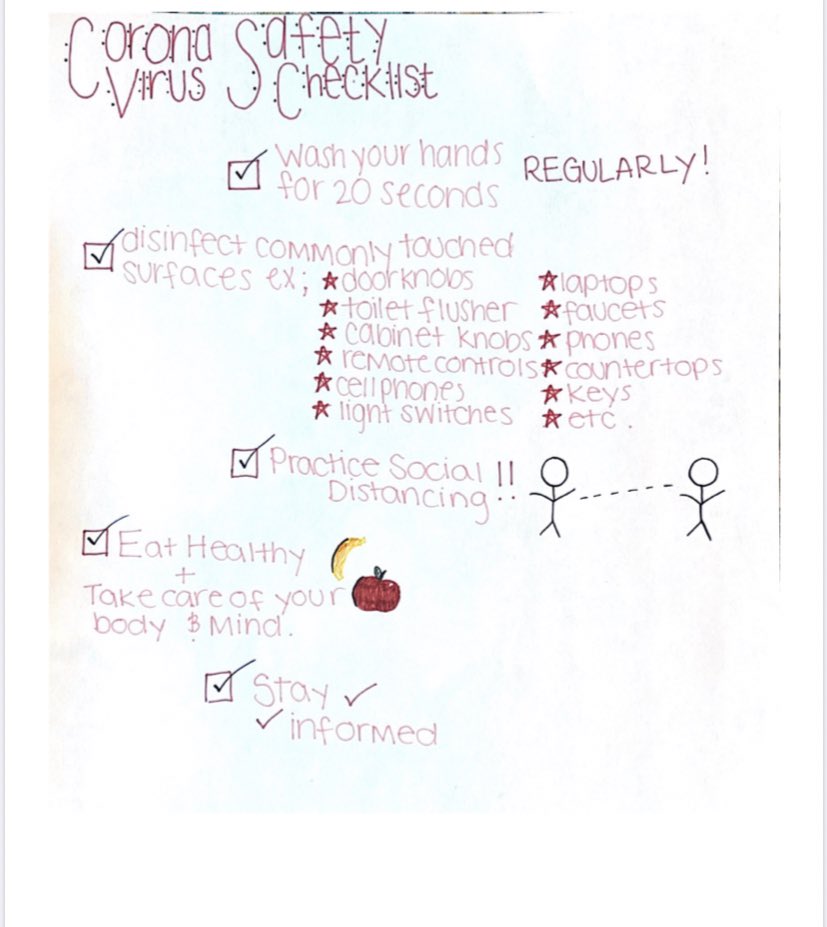 Corona Safety
Virus Checklist
Wash your hands REGULARLY!
for 20 seconds
disinfect commonly touched
surfaces ex;
doorknobs
toilet flusher
cabinet knobs
remote controls
cellphones
light switches
laptops
faucets
phones
countertops
keys
etc.
Practice Social !!
Distancing
Eat Healthy
+
Take care of your
body & Mind.
Stay
informed